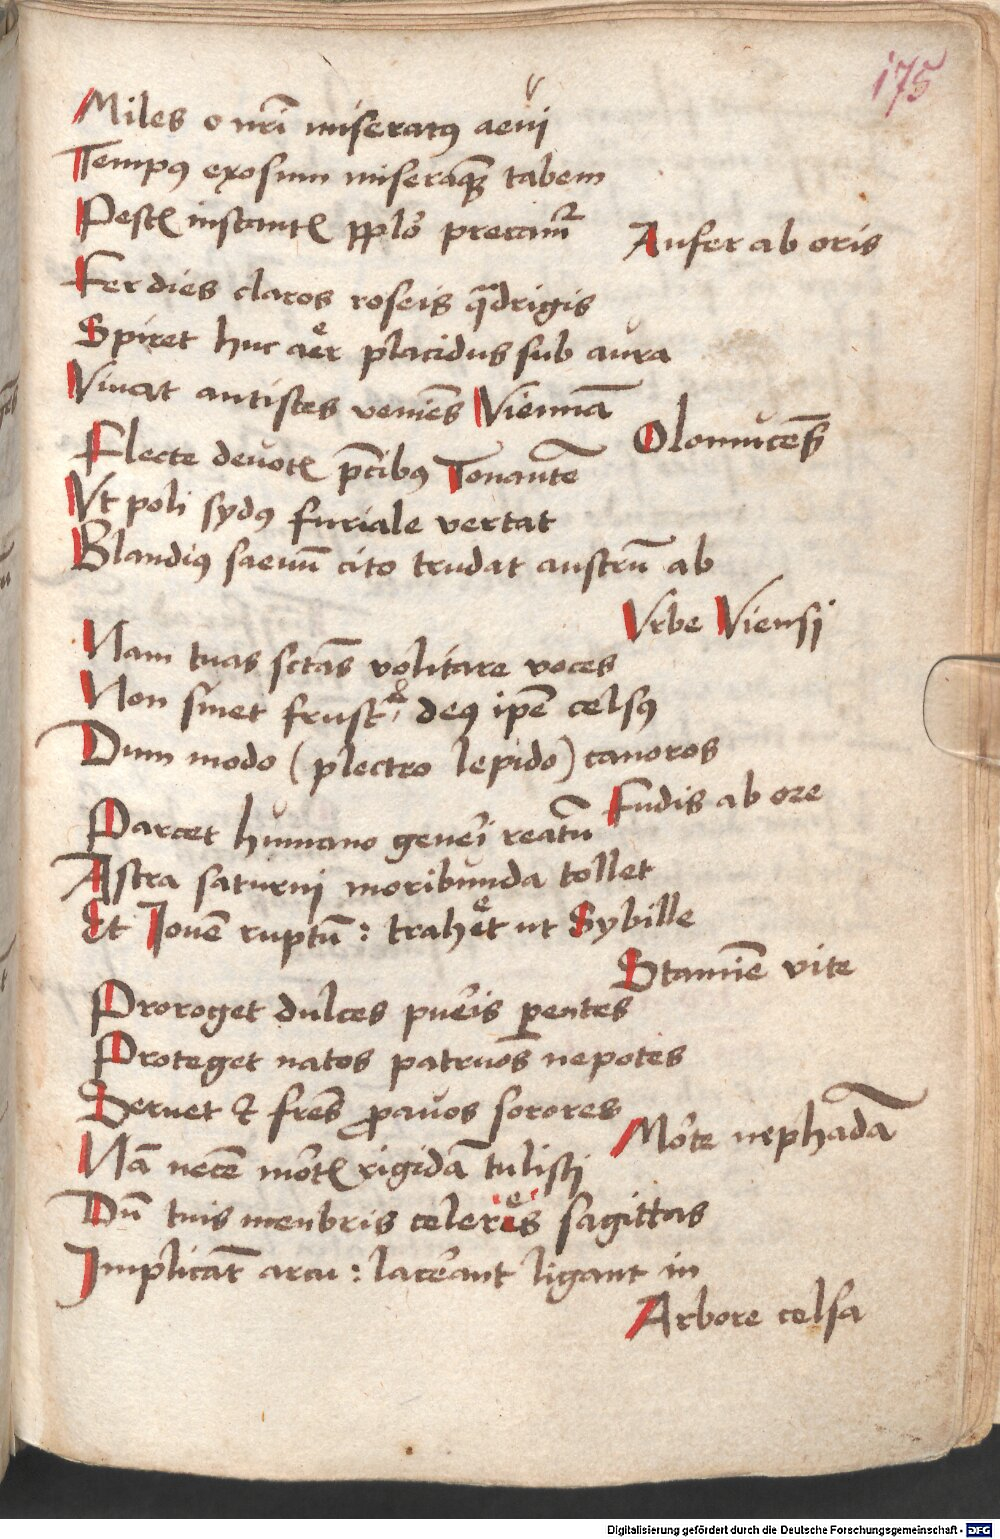 175
Miles o nrī miseratꝰ aeui
Tempꝰ exosum miseraqꝫ tabem
Pestē instantē pplō precamr̄
Aufer ab oris
Fer dies claros roseis qͣdrigis
Spiret huc aër placidus sub aura
Viuat antistes veniēs Viennā
Olomucēs
Flecte deuotē pcībꝰ Tonantē
Vt poli sydꝰ furiale vertat
Blandiꝰ saeuū cito trudat austrū ab
Vrbe Viensi
Nam tuas sctās volitare voces
Non sinet frustͣ deꝰ ipē celsꝰ
Dum modo (plectro lepido) canoros
Fudis ab ore
Parcet humano genēi reatū
Astra saturni moribunda tollet
Et Iouē ruptū: trahet ut Sybille
Stamīe vite
Proroget dulces puēis ꝑentes
Proteget natos patruos nepotes
Seruet & frēs ꝓauos sorores
Mōrte nephādā
Nā necē mōrtē rigidā tulisti
Dū tuis menbris celeres sagittas
Implicāt arcu: lacēant ligant in
Arbore celsa
Digitalisierung gefördert durch die Deutsche Forschungsgemeinschaft - DFG